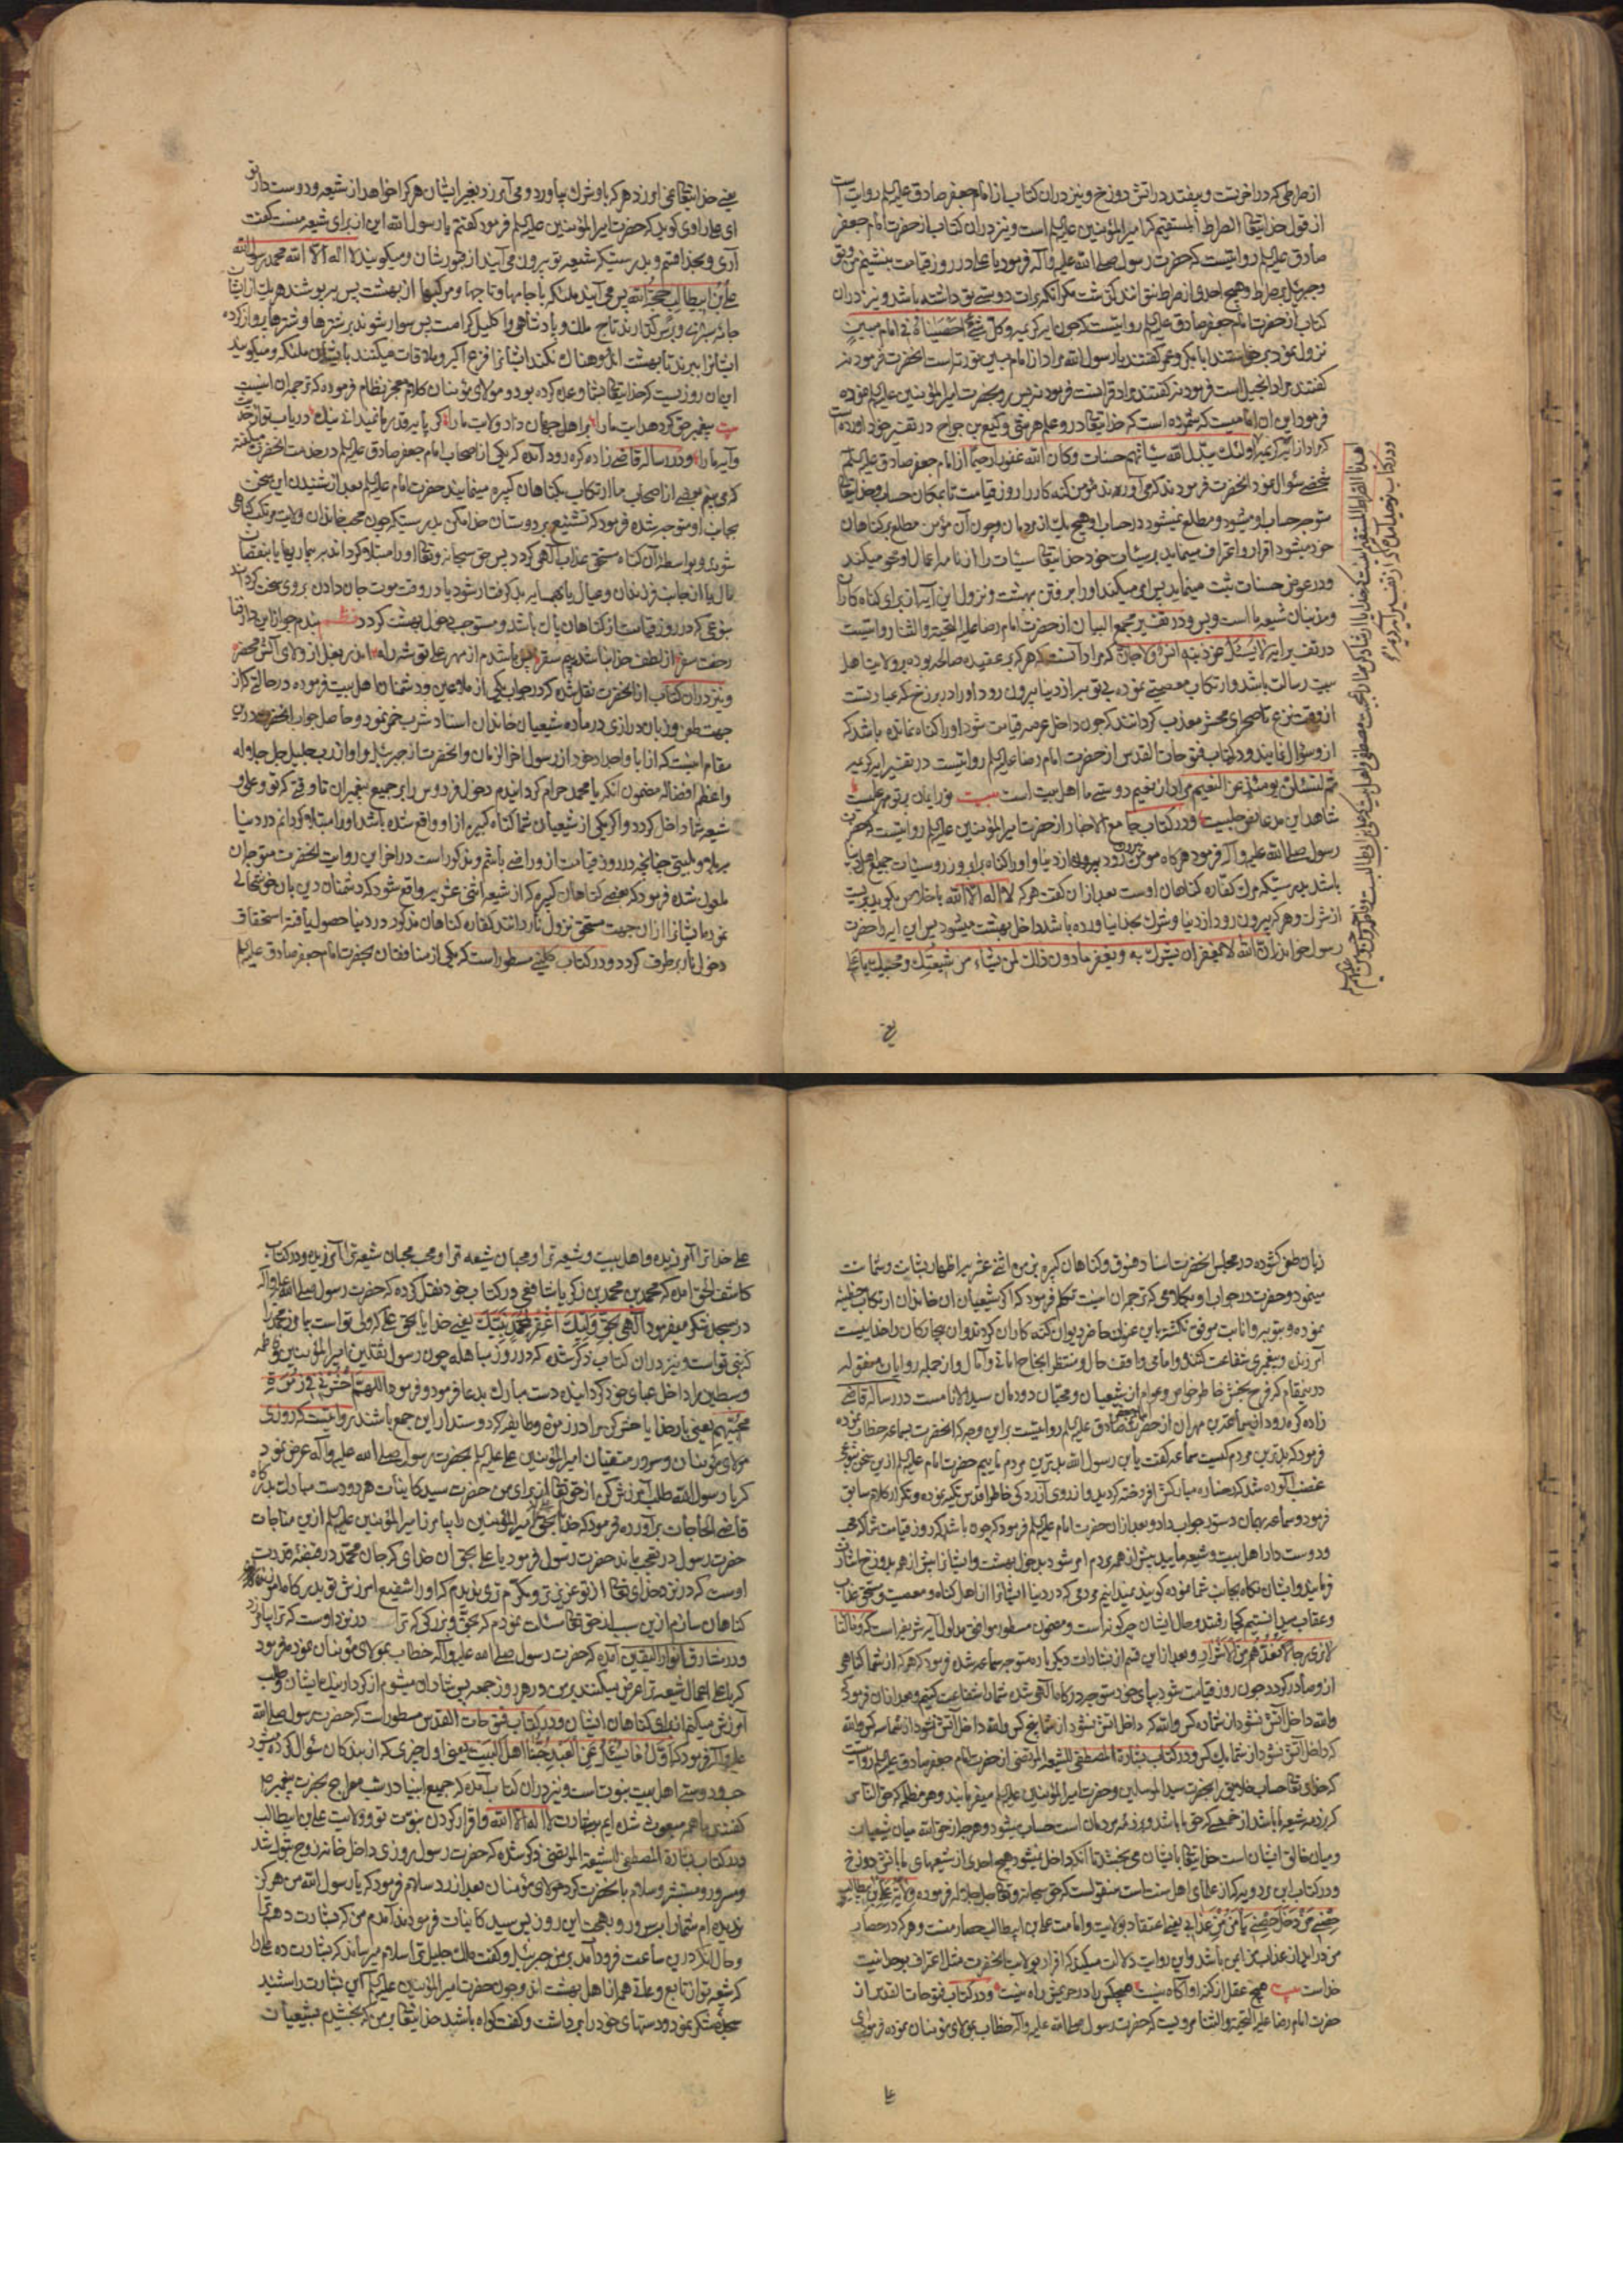 از صراطی که در آخرتست و بیفتد در آتش دوزخ و نیز در آن کتاب از امام جعفر صادق علیه السلم روایت است
از قول خدایتعالی الصراط المستقیم که امیر المؤمنین علیه السلم است و نیز در آن کتاب از حضرت امام جعفر
صادق علیه السلم روایتست که حضرت رسول صلی الله علیه و آله فرمود یا علی در روز قیامت بنشینم من و تو
و جبرئیل بر صراط و هیچ احدی از صراط نتواند گذشت مگر آنکه برات دوستی تو داشته باشد و نیز در آن
کتاب از حضرت امام جعفر صادق علیه السلم روایتست که چون آیه کریمه و کل شیء احصیناه فی امام مبین
نزول نمود برخاستند ابابکر و عمر گفتند یا رسول الله مراد از امام مبین توریة است آنحضرت فرمود نه
گفتند مراد انجیل است فرمود نه گفتند مراد قرآنست فرمود نه پس رو بحضرت امیر المؤمنین علیه السلم نموده
فرمود این آن امامیست که شمرده است که خدایتعالی در و علم هر شیء و
که مراد از آیه کریمه اولئک یبدل الله سیئاتهم حسنات و کان الله غفورا رحیما از امام جعفر صادق علیه السلم
شخصی سؤال نمود آنحضرت فرمودند که می آورند مؤمن گنه کار را روز قیامت تا بمکان حساب و خدایتعالی
متوجه حساب او میشود و مطلع نمیشود در حساب او هیچ یک از مردمان و چون آن مؤمن مطلع بر گناهان
خود میشود اقرار و اعتراف مینماید بر سیئات خود خدایتعالی سیئات را از نامه اعمال او محو میکند
و در عوض حسنات ثبت مینماید پس امر میکند او را برفتن بهشت و نزول این آیه از برای گناه کاران
و مذنبان شیعه ما است و بس و در تفسیر مجمع البیان از حضرت امام رضا علیه التحیة و الثنا روایتست
در تفسیر آیه لا یسئل عن ذنبه انس و لا جان که مراد آنست که هر که بر عقیده صالحه بوده بر ولایت اهل
بیت رسالت باشد و ارتکاب معصیتی نموده بی توبه از دنیا بیرون رود او را در برزخ که عبارتست
از وقت نزع تا صحرای محشر معذب گردانند که چون داخل عرصه قیامت شود او را گناه نمانده باشد که
از و سؤال نمایند و در کتاب فتوحات القدس از حضرت امام رضا علیه السلم روایتست در تفسیر آیه کریمه
ثم لتسئلن یومئذ عن النعیم مراد از نعیم دوستی ما اهل بیت است بیت
شاهد این مدعا و در کتاب جامع الاخبار از حضرت امیر المؤمنین علیه السلم روایتست که حضرت
رسول صلی الله علیه و آله فرمود هر گاه مؤمن بیرون رود از دنیا و او را گناه برابر روز
باشد بدرستیکه مرگ کفاره گناهان اوست بعد از آن گفت هر که لا اله الا الله باخلاص بگوید بریست
از شرک و هر که بیرون رود از دنیا و شرک بخدا نیاورده باشد داخل بهشت میشود پس این آیه را حضرت
رسول خواند ان الله لا یغفر ان یشرک به و یغفر ما دون ذلک لمن یشاء من شیعتک و محبیک یا علی
یعنی
یعنی خدایتعالی نمی آمرزد هر که باو شرک بیاورد و می آمرزد بغیر ایشان هر که را خواهد از شیعه و دوست داران تو
ای علی راوی گوید که حضرت امیر المؤمنین علیه السلم فرمود گفتم یا رسول الله این از برای شیعه منست گفت
آری و بخدا قسم و بدرستیکه شیعه تو بیرون می آیند از قبورشان و میگویند لا اله الا الله محمد رسول الله
علی بن ابیطالب حجة الله پس می آیند ملائکه با جامها و تاجها و مرکبها از بهشت پس بپوشند هر یک از ایشان
جامه سبزی و بر سر گذارند تاج ملک و پادشاهی و اکلیل کرامت پس سوار شوند بر شترها و شترها پرواز کرده
ایشانرا ببرند تا بهشت اندوهناک نکند ایشانرا فزع اکبر و ملاقات میکنند بایشان ملائکه و میگویند
این آن روزیست که خدایتعالی بشما وعده کرده بود و مولای مؤمنان کلام معجز نظام فرموده که ترجمه آن اینست
بیت پیغمبر حق کرد هدایت ما را بر اهل جهان داد ولایت ما را
و در رساله قاضی زاده کره رودی آمده که یکی از اصحاب امام جعفر صادق علیه السلم در خدمت آنحضرت میگفته
که می بینم بعضی از اصحاب ما ارتکاب گناهان کبیره مینمایند حضرت امام علیه السلم بعد از شنیدن این سخن
بجانب او متوجه شده فرمود که تشنیع بر دوستان خدا مکن بدرستیکه چون محب خاندان ولایت مرتکب گناهی
شود و بواسطه آن گناه مستحق عذاب الهی گردد پس حق سبحانه و تعالی او را مبتلا گرداند بر بیماریها یا بنقصان
مال یا از جانب فرزندان و عیال یا بهمسایه بد گرفتار شود یا در وقت موت جان دادن بر وی سخت گرداند
بنوعی که در روز قیامت از گناهان پاک باشد و مستوجب دخول بهشت گردد
و نیز در آن کتاب از آنحضرت نقل شده که در جواب یکی از ملاعین و دشمنان اهل بیت فرموده در حالتی که از
جهت طعن و زبان درازی در ماده شیعیان خاندان اسناد شرب خمر نمود و حاصل جواب آنحضرت درین
مقام اینست که از آبا و اجداد خود از رسول آخر الزمان و آنحضرت از جبرئیل و او از رب جلیل جل جلاله
شیعه شما داخل گردد و اگر یکی از شیعیان شما گناه کبیره ازو واقع شده باشد او را مبتلا گردانم در دنیا
دخول نار بر طرف گردد و در کتاب کلینی مسطور است که یکی از منافقان بحضرت امام جعفر صادق علیه السلم
زبان طعن گشوده در مجلس آنحضرت اسناد فسوق و گناهان کبیره
میتمود و حضرت در جواب او بکلامی که ترجمه آن اینست تکلم فرمود که اگر شیعیان آن خاندان ارتکاب خطیئه
نموده و بتوبه و انابت موفق نگشته
آمرزنده و پیغمبری شفاعت کننده و امامی واقف حال و منتظر انجاح امانی و آمال و از جمله روایات منقوله
درینمقام که فرح بخش خاطر خواص و عوام از شیعیان و محبان دودمان سید الانامست در رساله قاضی
زاده کره رودی سماعة بن مهران از حضرت صادق علیه السلم روایتست برین وجه که آنحضرت بسماعه خطاب نموده
فرمود که بدترین مردم کیست سماعه گفت یا ابن رسول الله بدترین مردم ماییم حضرت امام علیه السلم ازین سخن
غضب آلوده شد
فرمود و سماعه بهمان دستور جواب داد و بعد از آن حضرت امام علیه السلم فرمود که چون باشد که روز قیامت شما که محب
و دوست دار اهل بیت و شیعه مایید پیش از همه مردم امر شود بدخول بهشت و
لا نری رجالا کنا نعدهم من الاشرار و بعد از این قسم از بشارات دیگر باره متوجه سماعه شده فرمود که هر که از شما گناهی
ازو صادر گردد چون روز قیامت شود بپای خود متوجه درگاه الهی شده شما را شفاعت کنیم و بعد از آن فرمود که
والله داخل آتش نشود از شما ده کس والله که داخل آتش نشود از شما پنج کس والله داخل آتش نشود از شما سه کس والله
که داخل آتش نشود از شما یک کس و در کتاب بشارة المصطفی لشیعة المرتضی از حضرت امام جعفر صادق علیه السلم روایتست
که خدای تعالی حساب خلایق را بحضرت سید المرسلین و حضرت امیر المؤمنین علیه السلم میفرمایند و هر مظلمه که حق الناس
و میان خالق ایشان است خدایتعالی بایشان می بخشد تا آنکه داخل نمیشود هیچ احدی از شیعهای ما باتش دوزخ
و در کتاب ابن مردویه که از علمای اهل سنت است منقولست که حق سبحانه و تعالی جل جلاله فرموده ولایة علی بن ابیطالب
حصنی من دخل حصنی یأمن من عذابی یعنی اعتقاد بولایت و امامت علی بن ابیطالب حصار منست و هر که در حصار
من در آید از عذاب من ایمن باشد و این روایت دلالت میکند که اقرار بولایت آنحضرت مثل اعتراف بوحدانیت
خداست بیت هیچ عقل از کنه او آگاه نیست هیچکس را در حریمش راه نیست و در کتاب فتوحات القدس از
حضرت امام رضا علیه التحیة و الثنا مرویست که حضرت رسول صلی الله علیه و آله خطاب بمولای مؤمنان نموده فرمود ای
علی
علی خدا ترا آمرزیده و اهل بیت و شیعه ترا و محبان شیعه ترا و محب محبان شیعه ترا آمرزیده و در کتاب
کاشف الحق آمده که محمد بن محمد بن زکریا شافعی در کتاب خود نقل کرده که حضرت رسول صلی الله علیه و آله
در سجده شکر میفرمود الهی بحق ولیک اغفر لمحمد نبیک یعنی خدایا بحق علی که ولی تو است بیامرز محمد را
که نبی تو است و نیز در آن کتاب ذکر شده که در روز مباهله چون رسول ثقلین امیر المؤمنین و فاطمه
و سبطین را داخل عبای خود گردانیده دست مبارک بدعا فرمود و فرمود اللهم احشرنی فی زمرة
محبیهم یعنی بار خدایا حشر کن مرا در زمره و طایفه که دوستدار این جمع باشند روایتست که روزی
مولای مؤمنان و سرور متقیان امیر المؤمنین علی علیه السلم بحضرت رسول صلی الله علیه و آله عرض نمود
که یا رسول الله طلب آمرزش کن از حق تعالی از برای من حضرت سید کاینات هر دو دست مبارک بدرگاه
قاضی الحاجات برآورده فرمود که خدایا بحق علی امیر المؤمنین را بیامرز امیر المؤمنین علیه السلم ازین مناجات
حضرت رسول در تعجب ماند حضرت رسول فرمود یا علی بحق آن خدای که جان محمد در قبضه قدرت
اوست که در نزد خدای تعالی از تو عزیزتر و مکرم تری ندیدم که او را شفیع آمرزش تو
و در مشارق انوار الیقین آمده که حضرت رسول صلی الله علیه و آله خطاب بمولای مؤمنان نموده فرمود
که یا علی اعمال شیعه ترا عرض میکنند بر من در هر روز جمعه پس شادان میشوم از کردار نیک ایشان و طلب
آمرزش میکنم از برای گناهان ایشان و در کتاب فتوحات القدس مسطور است که حضرت رسول صلی الله
علیه و آله فرمود که اول ما یسئل عن العبد حبنا اهل البیت یعنی اول چیزی که از بندگان سؤال کرده میشود
حب و دوستی اهل بیت نبوت است و نیز در آن کتاب آمده که جمیع انبیا در شب معراج بحضرت پیغمبر
گفتند ما همه مبعوث شده ایم بشهادت لا اله الا الله و اقرار کردن بنبوت تو و ولایت علی بن ابیطالب
و در کتاب بشارة المصطفی لشیعة المرتضی ذکر شده که حضرت رسول روزی داخل خانه زوج بتول شد
و مسرور و مستبشر و سلام بآنحضرت کرد مولای مؤمنان بعد از رد سلام فرمود که یا رسول الله من هرگز
ندیده ام شما را بسرور و بهجت این روز پس سید کاینات فرمود آمدم من که بشارت دهم ترا
و حال آنکه درین ساعت فرود آمد بر من جبرئیل و گفت ملک جلیل ترا سلام میرساند که بشارت ده علی را
که شیعه تو از تابع و عاصی همه از اهل بهشت اند و چون حضرت امیر المؤمنین علیه السلم این بشارت را شنید
سجده شکر نمود و دستهای خود را برداشت و گفت گواه باشید خدایتعالی بر من که بخشیدم بشیعیان